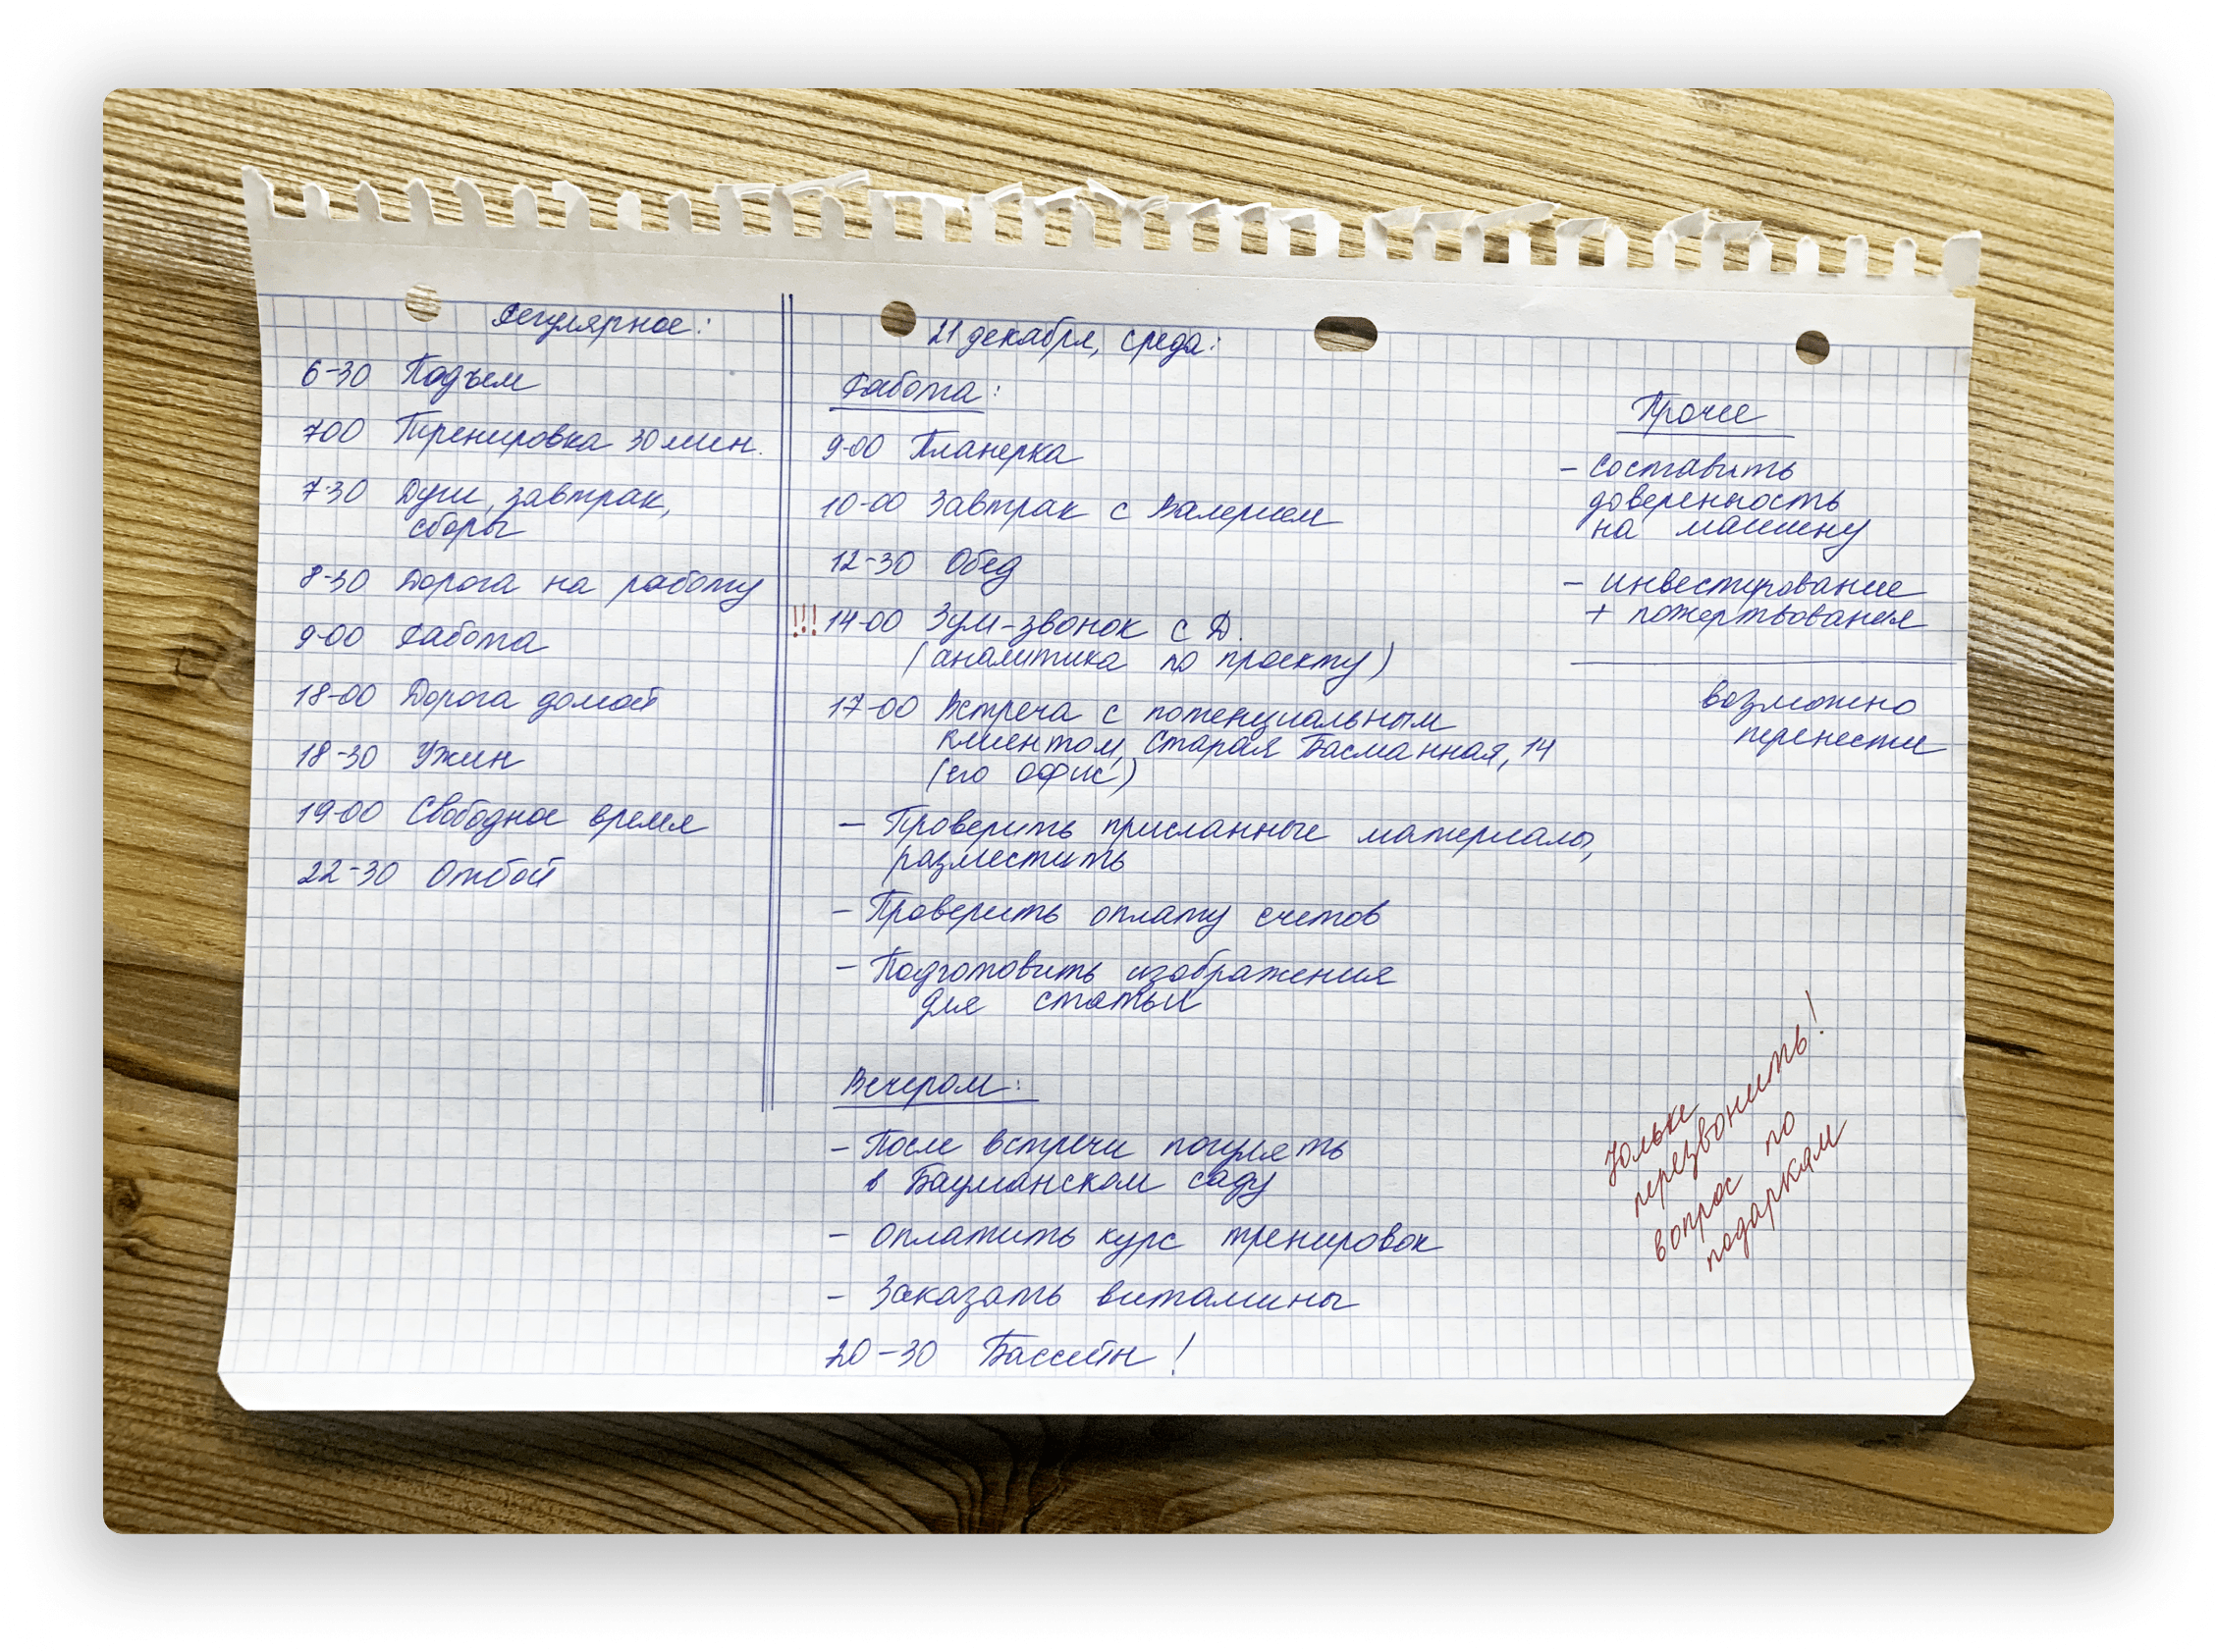 Регулярное:
6-30 Подъем
700 Тренировка 30 мин.
7-30 Душ, завтрак,
сборы
8-30 Дорога на работу
9-00 Работа
18-00 Дорога домой
18-30 Ужин
19-00 Свободное время
22-30 Отбой
21 декабря, среда:
Работа:
9-00 Планерка
10-00 Завтрак с Валерием
12-30 Обед
!!! 14-00 Зум-звонок с Д.
(аналитика по проекту)
17-00 Встреча с потенциальным
клиентом, Старая Басманная, 14
(его офис)
- Проверить присланные материалы,
разместить
- Проверить оплату счетов
- Подготовить изображения
для статьи
Вечером:
- После встречи погулять
в Бауманском саду
- Оплатить курс тренировок
- Заказать витамины
20-30 Бассейн!
Прочее
- составить
доверенность
на машину
- инвестирование
+ пожертвования
возможно
перенести
Юльке
перезвонить!
вопрос по
подаркам